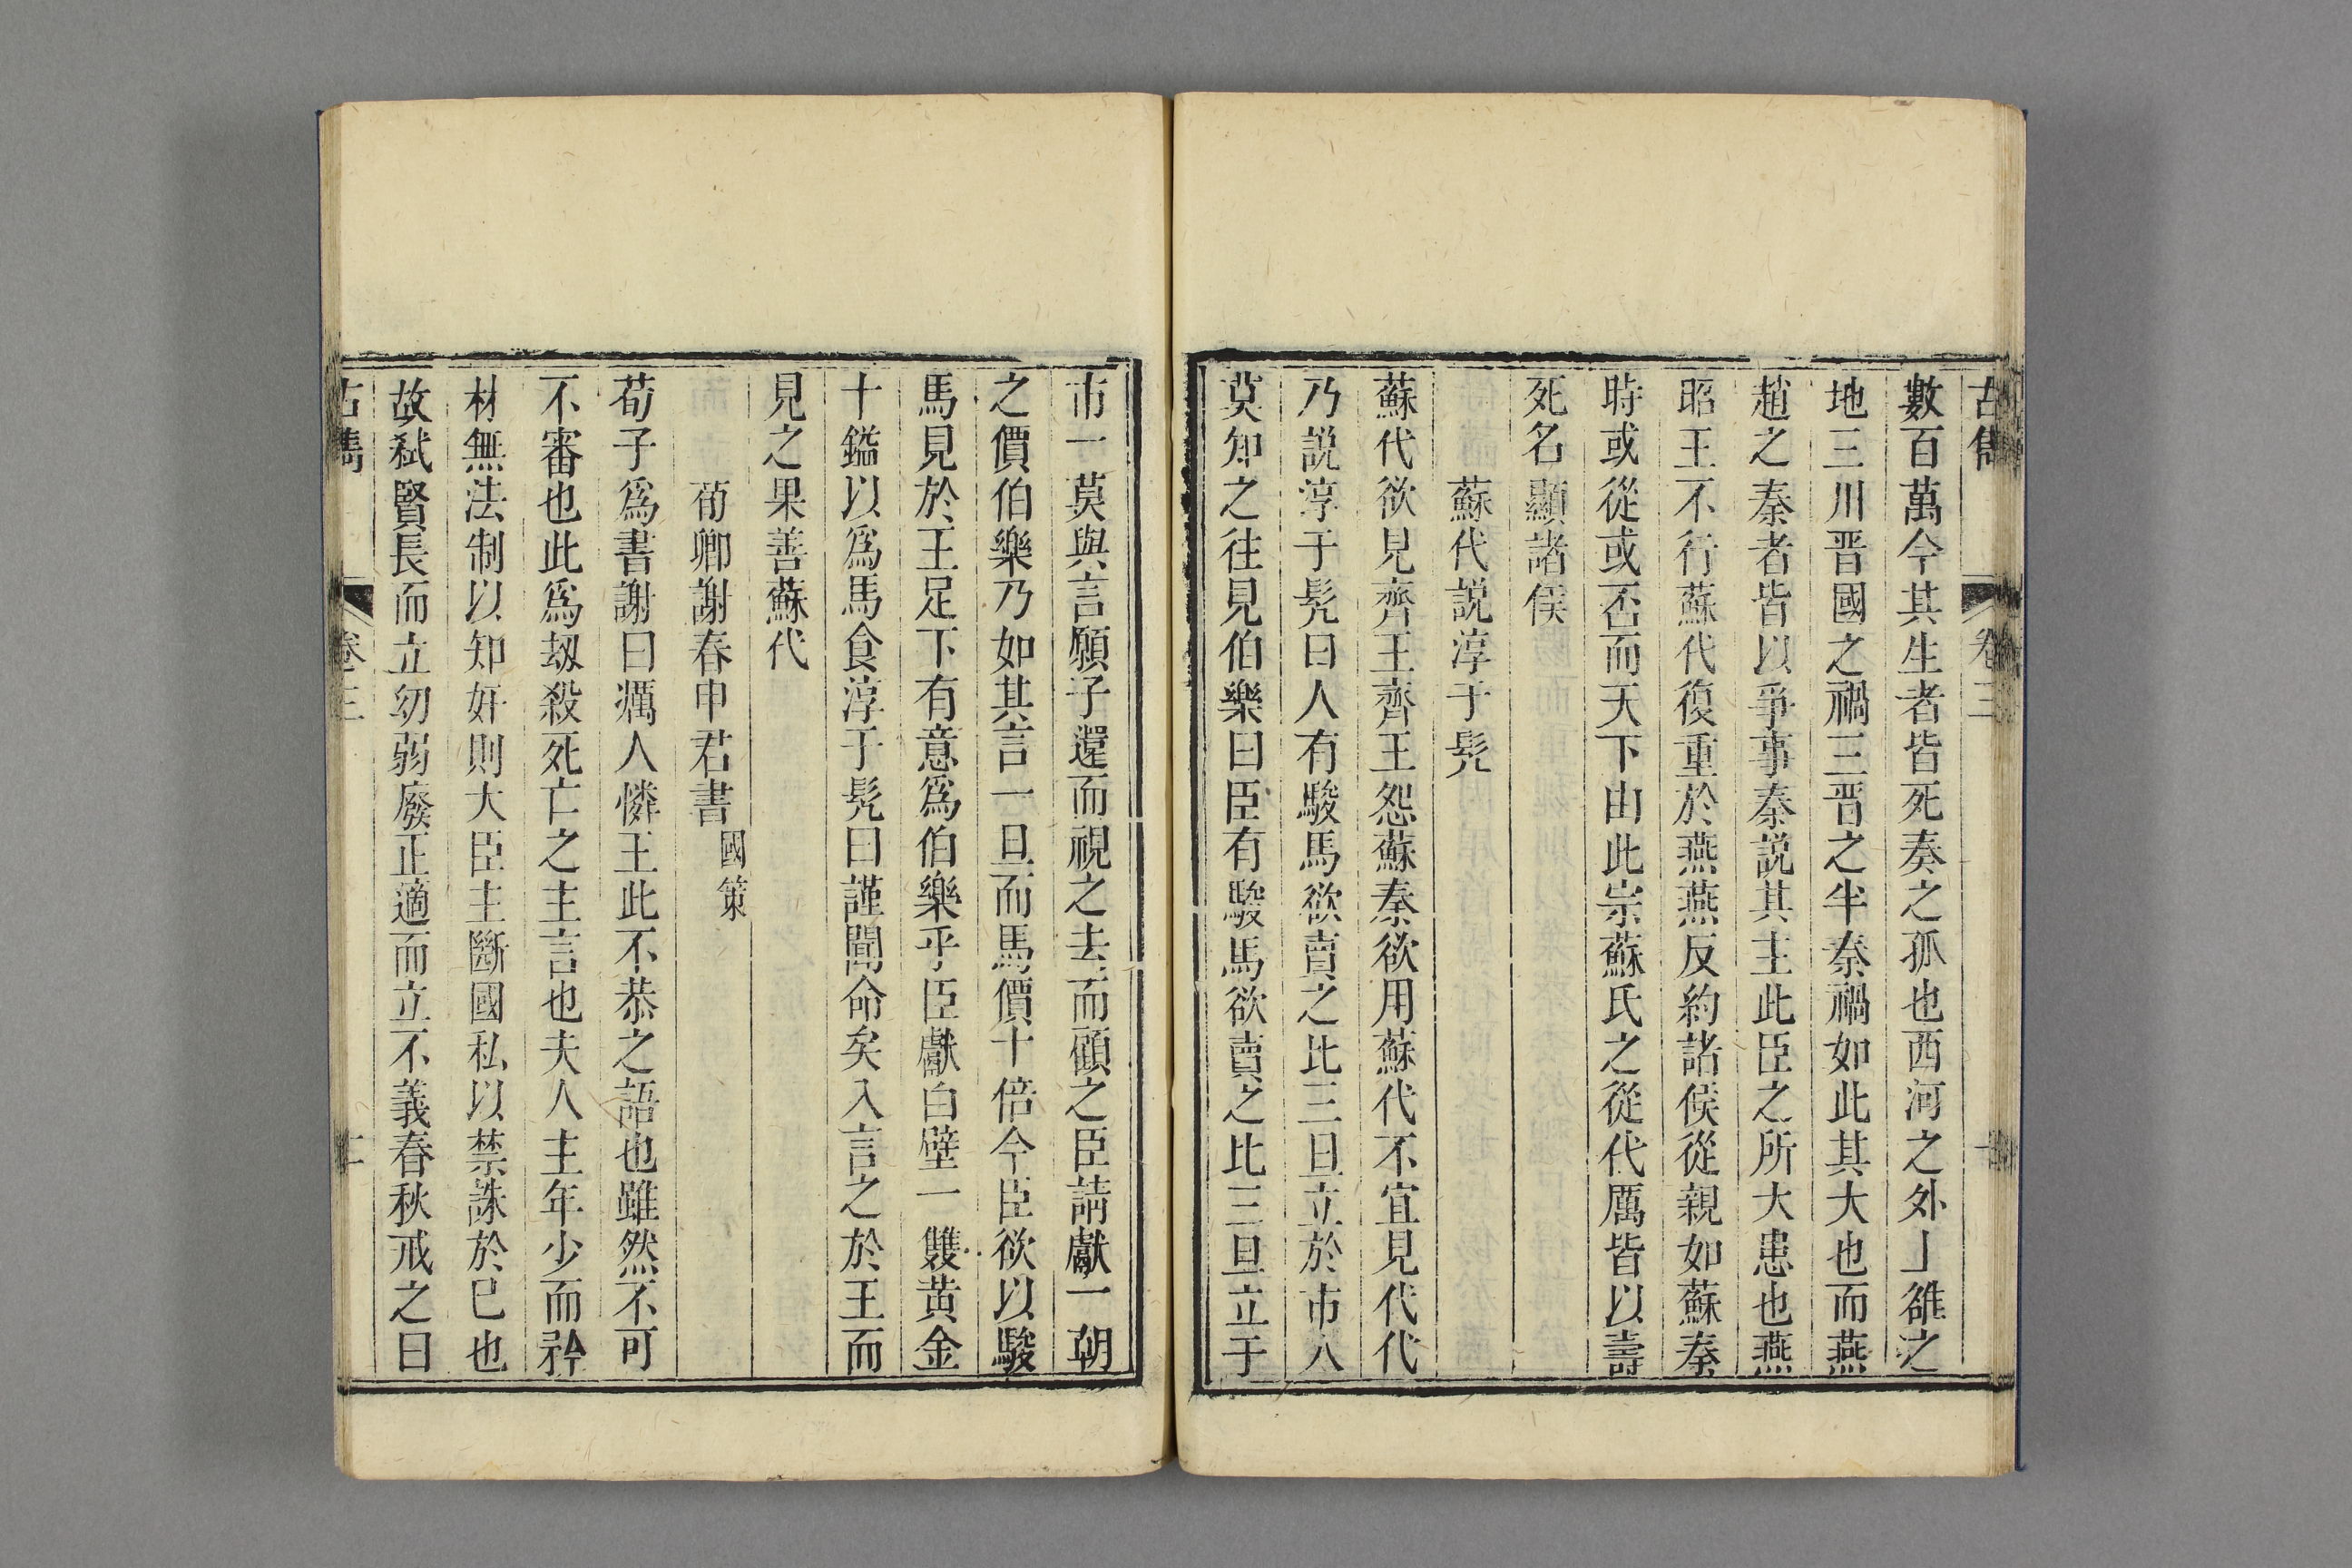 古雋 卷三
數百萬今其生者皆死秦之孤也西河之外上雒之
地三川晋國之禍三晋之半秦禍如此其大也而燕
趙之秦者皆以爭事秦説其主此臣之所大患也燕
昭王不行蘇代復重於燕燕反約諸侯從親如蘇秦
時或從或否而天下由此宗蘇氏之從代厲皆以壽
死名顯諸侯
蘇代説淳于髡
蘇代欲見齊王齊王怨蘇秦欲用蘇代不宜見代代
乃説淳于髡曰人有駿馬欲賣之比三旦立於市人
莫知之往見伯樂曰臣有駿馬欲賣之比三旦立于
市一莫與言願子還而視之去而顧之臣請獻一朝
之價伯樂乃如其言一旦而馬價十倍今臣欲以駿
馬見於王足下有意爲伯樂乎臣獻白璧一雙黄金
十鎰以爲馬食淳于髡曰謹聞命矣入言之於王而
見之果善蘇代
荀卿謝春申君書國策
荀子爲書謝曰癘人憐王此不恭之語也雖然不可
不審也此爲刼殺死亡之主言也夫人主年少而矜
材無法制以知奸則大臣主斷國私以禁誅於已也
故弑賢長而立幼弱廢正適而立不義春秋戒之曰
古雋 卷三